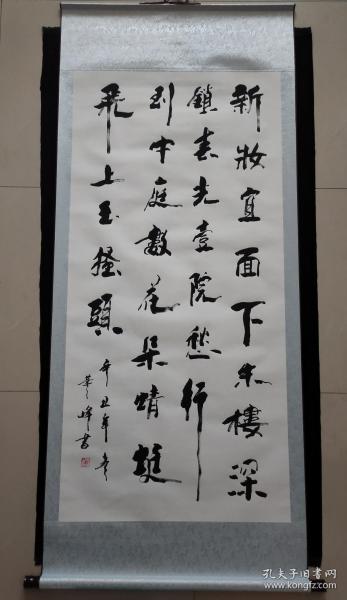 新妝宜面下朱樓深
鎖春光壹院愁行
到中庭數花朵蜻蜓
飛上玉搔頭
辛丑年
華峰書
孔夫子旧书网
www.kongfz.com